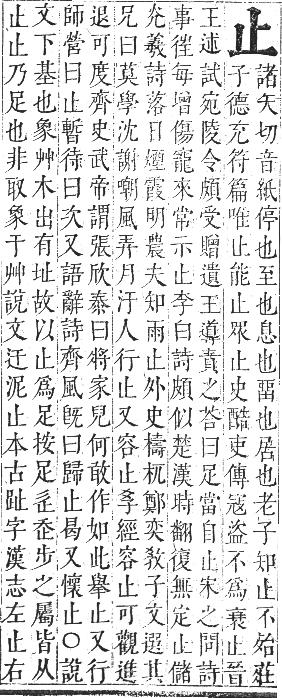 止諸矢切音紙停也至也息也畱也居也老子知止不殆莊
子德充符篇唯止能止眾止史酷吏傳寇盜不爲衰止晉
王述試宛陵令頗受贈遺王導責之答曰足當自止宋之問詩
事徃每增傷寵來常示止李白詩頗似楚漢時翻復無定止儲
光羲詩落日煙霞明農夫知雨止外史檮杌鄭奕敎子文選其
兄曰莫學沈謝嘲風弄月汙人行止又容止孝經容止可觀進
退可度齊史武帝謂張欣泰曰將家兒何敢作如此舉止又行
師營曰止暫待曰次又語辭詩齊風旣曰歸止曷又懷止○說
文下基也象艸木出有址故以止爲足按足步之屬皆从
止止乃足也非取象于艸說文迂泥止本古趾字漢志左止右